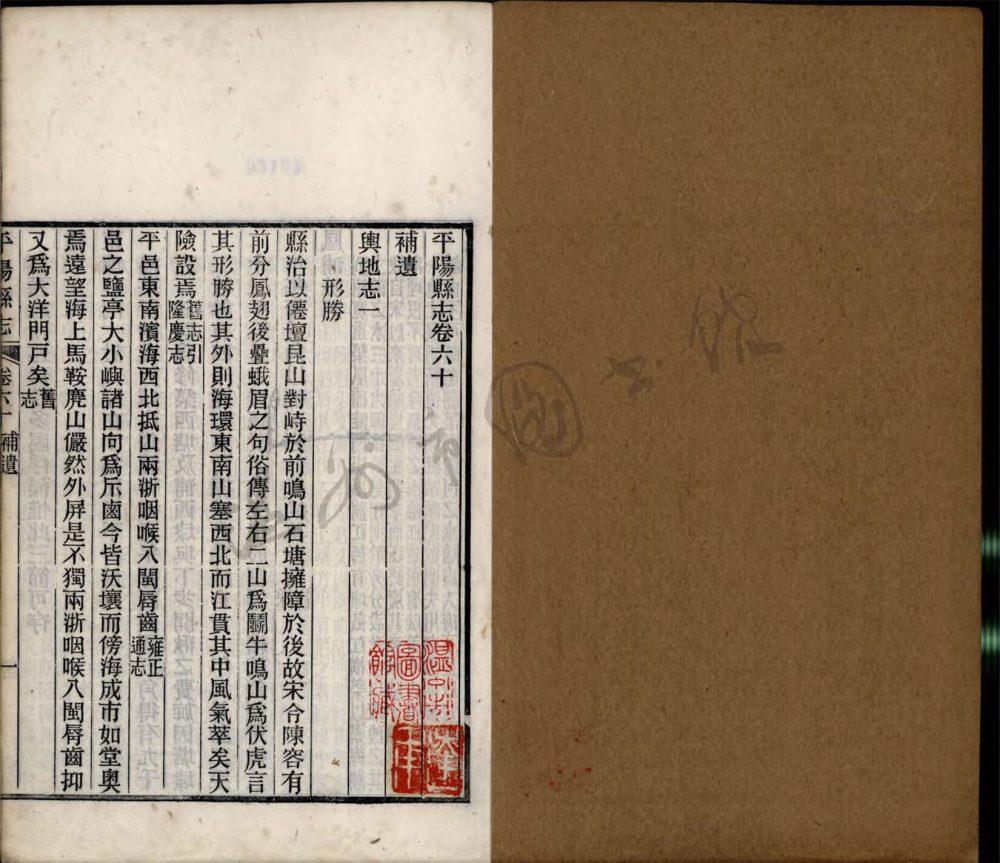 平陽縣志卷六十
補遺
輿地志一
形勝
縣治以僊壇昆山對峙於前鳴山石塘擁障於後故宋令陳容有
前分鳳翅後疊蛾眉之句俗傳左右二山爲鬭牛鳴山爲伏虎言
其形勝也其外則海環東南山塞西北而江貫其中風氣萃矣天
險設焉舊志引隆慶志
平邑東南濱海西北抵山兩浙咽喉八閩脣齒雍正通志
邑之鹽亭大小嶼諸山向爲斥鹵今皆沃壤而傍海成市如堂奧
焉遠望海上馬鞍麂山儼然外屏是不獨兩浙咽喉八閩脣齒抑
又爲大洋門戸矣舊志
平陽縣志 卷六十 補遺 一
溫州
圖書
館藏